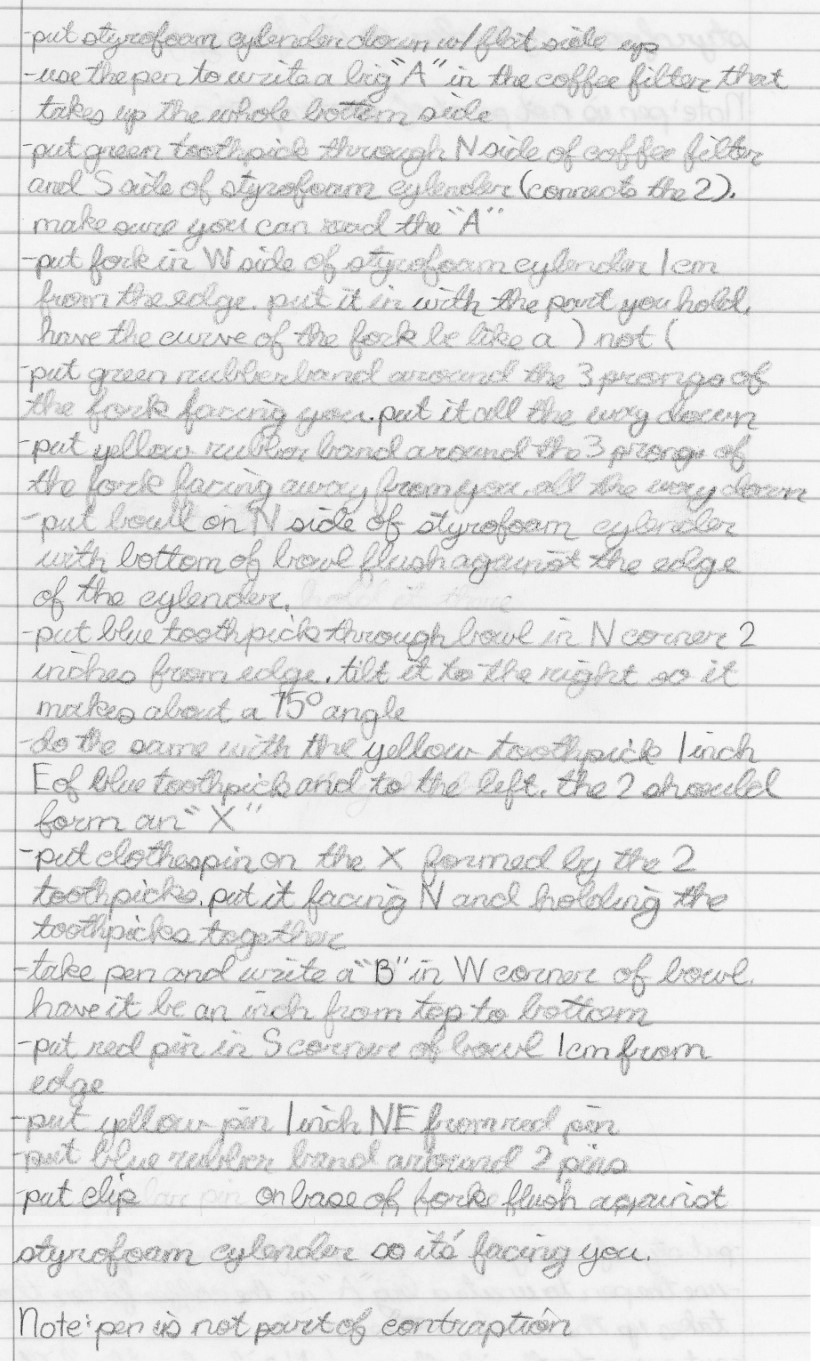 -put styrofoam cylender down w/ flat side up
-use the pen to write a big "A" in the coffee filter that
takes up the whole bottom side
-put green toothpick through N side of coffee filter
and S side of styrofoam cylender (connects the 2).
make sure you can read the "A"
-put fork in W side of styrofoam cylender 1cm
from the edge. put it in with the part you hold.
have the curve of the fork be like a ) not (
-put green rubberband around the 3 prongs of
the fork facing you. put it all the way down
-put yellow rubber band around the 3 prongs of
the fork facing away from you. all the way down
-put bowll on N side of styrofoam cylender
with bottom of bowl flush against the edge
of the cylender.
-put blue toothpick through bowl in N corner 2
inches from edge. tilt it to the right so it
makes about a 75° angle
-do the same with the yellow toothpick 1 inch
E of blue toothpick and to the left. the 2 should
form an "X"
-put clothespin on the X formed by the 2
toothpicks. put it facing N and holding the
toothpicks together
-take pen and write a "B" in W corner of bowl.
have it be an inch from top to bottom
-put red pin in S corner of bowl 1cm from
edge
-put yellow pin 1 inch NE from red pin
-put blue rubber band around 2 pins
-put clip on base of fork flush against
styrofoam cylender so its' facing you.
Note: pen is not part of contraption